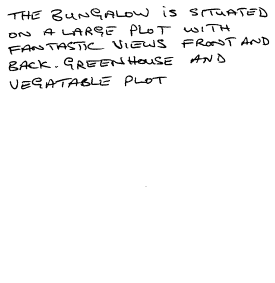 THE BUNGALOW IS SITUATED
ON A LARGE PLOT WITH
FANTASTIC VIEWS FRONT AND
BACK. GREENHOUSE AND
VEGATABLE PLOT